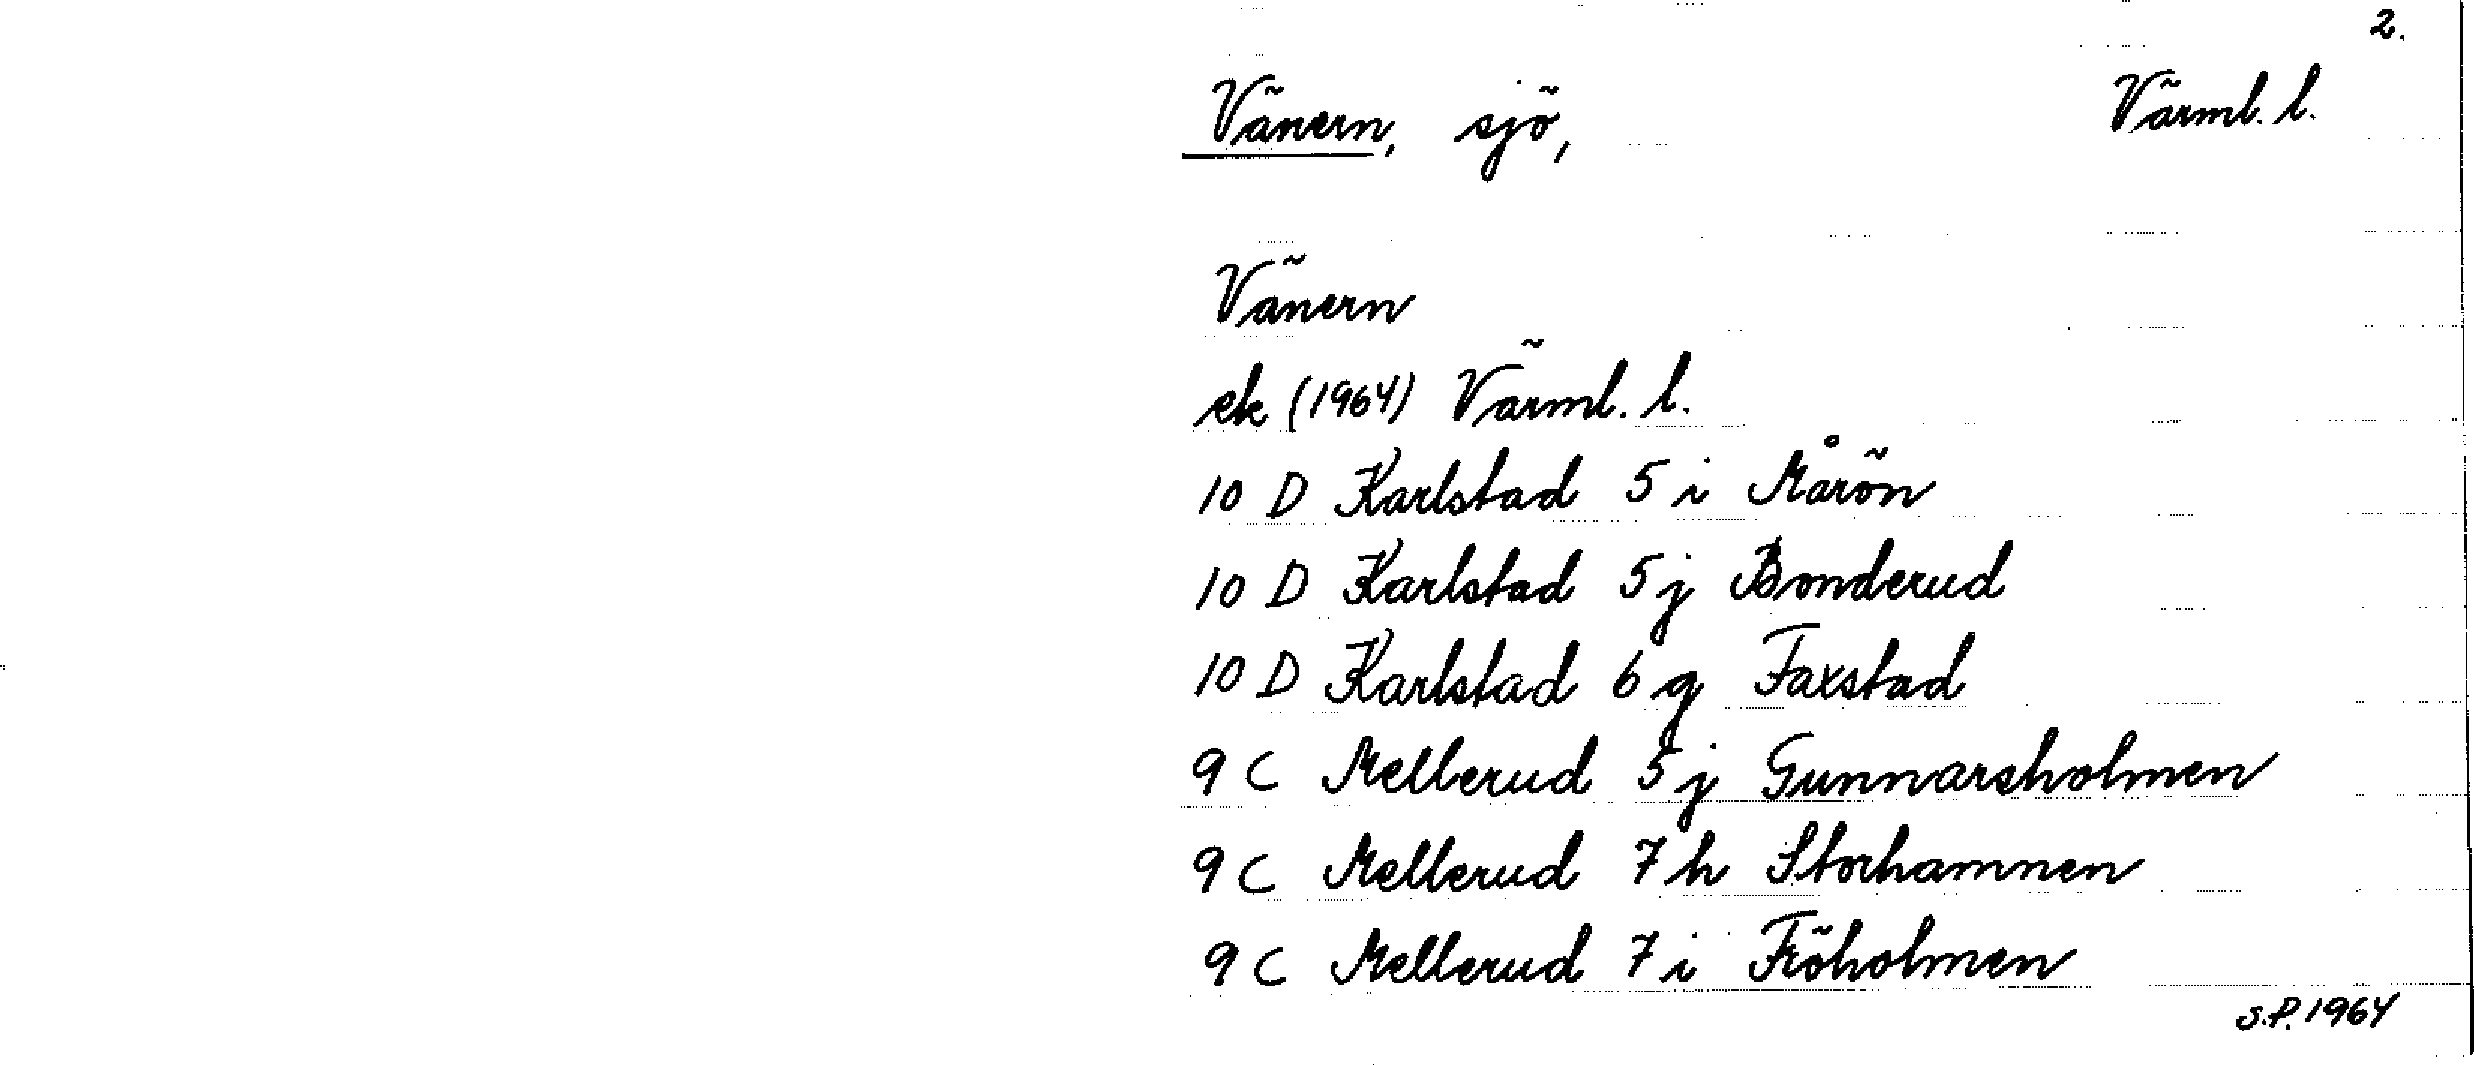 2.
Vänern, sjö, Värml. l.
Vänern
ek (1964) Värml. l.
10 D Karlstad 5 i Mårön
10 D Karlstad 5 j Bonderud
10 D Karlstad 6 g Faxstad
9 C Mellerud 5 j Gunnarsholmen
9 C Mellerud 7 h Storhamnen
9 C Mellerud 7 i Fröholmen
S.P. 1964